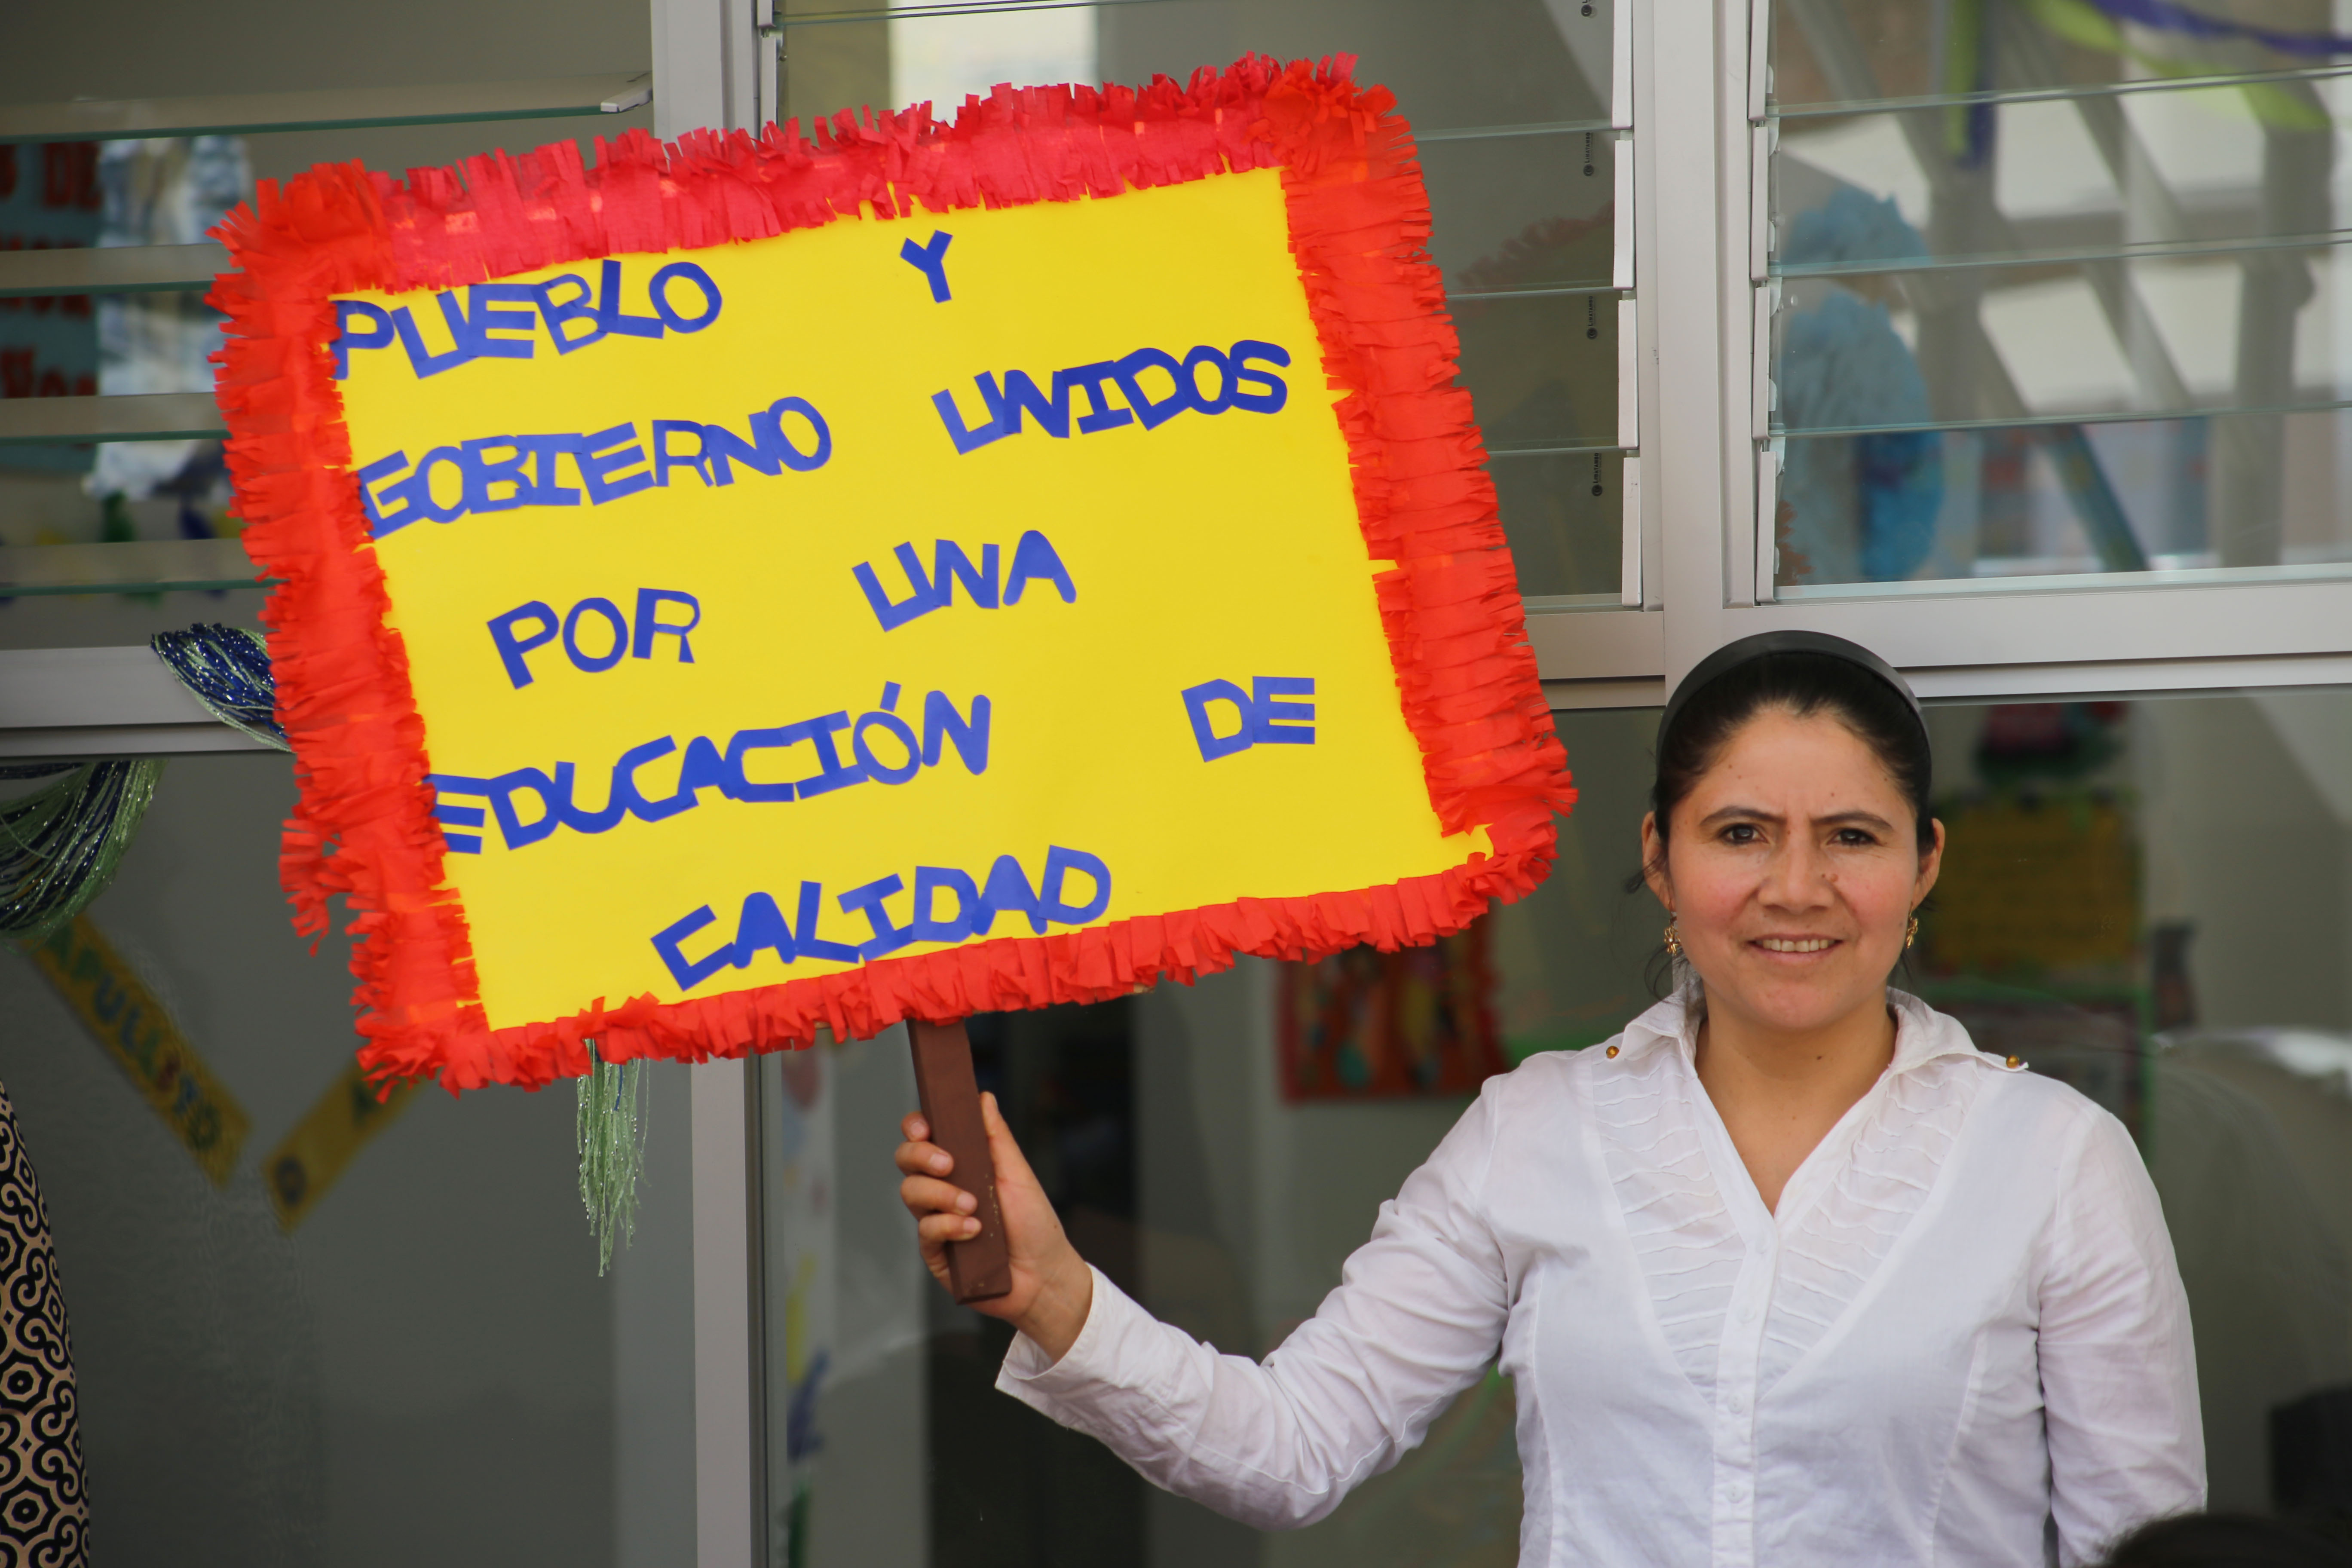 PUEBLO Y
GOBIERNO UNIDOS
POR UNA
EDUCACIÓN DE
CALIDAD